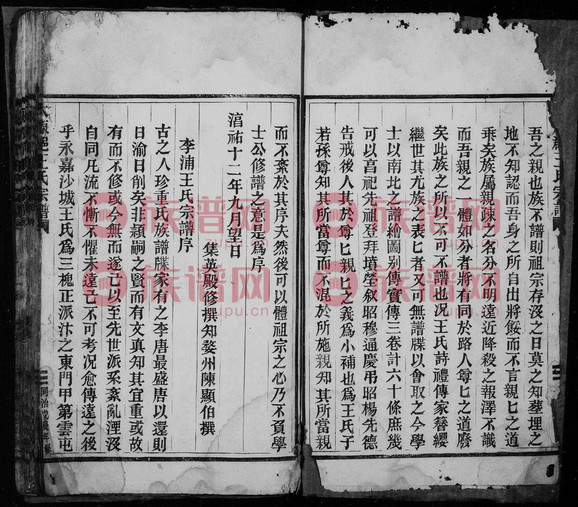 吾之親也族不譜則祖宗存沒之日莫之知葬埋之
地不知認而吾身之所自出將餒而不言親匕之道
乖矣族屬親疎之名分不明遠近降殺之報澤不識
而吾親之一體如分者將有同於路人尊匕之道廢
矣此族之所以不可不譜也況王氏詩禮傳家簪纓
繼世其尤族之表匕者又可無譜牒以會取之今學
士以南北之譜繪圖別傳實傳三卷計六十條庶幾
可以高祖先祖登拜墳塋敘昭穆通慶弔昭楊先德
告戒後人其於尊匕親匕之義為小補也為王氏子
若孫尊知其所當尊而不混於所施親知其所當親
而不紊於其序夫然後可以體祖宗之心乃不負學
士公修譜之意是為序
淳祐十二年九月望日
集英殿修撰知婺州陳顯伯撰
李浦王氏宗譜序
古之人珍重氏族譜牒家有之李唐最盛唐以還則
日渝日削矣非穎嗣之賢而有文真知其宜重或故
有而不修或今無而遂亡以至先世派系紊亂湮沒
自同凡流不慚不懼未遠亡不可考况愈傳遠之後
乎永嘉沙城王氏為三槐正派汴之東門甲第雲屯
王氏宗譜
族谱网